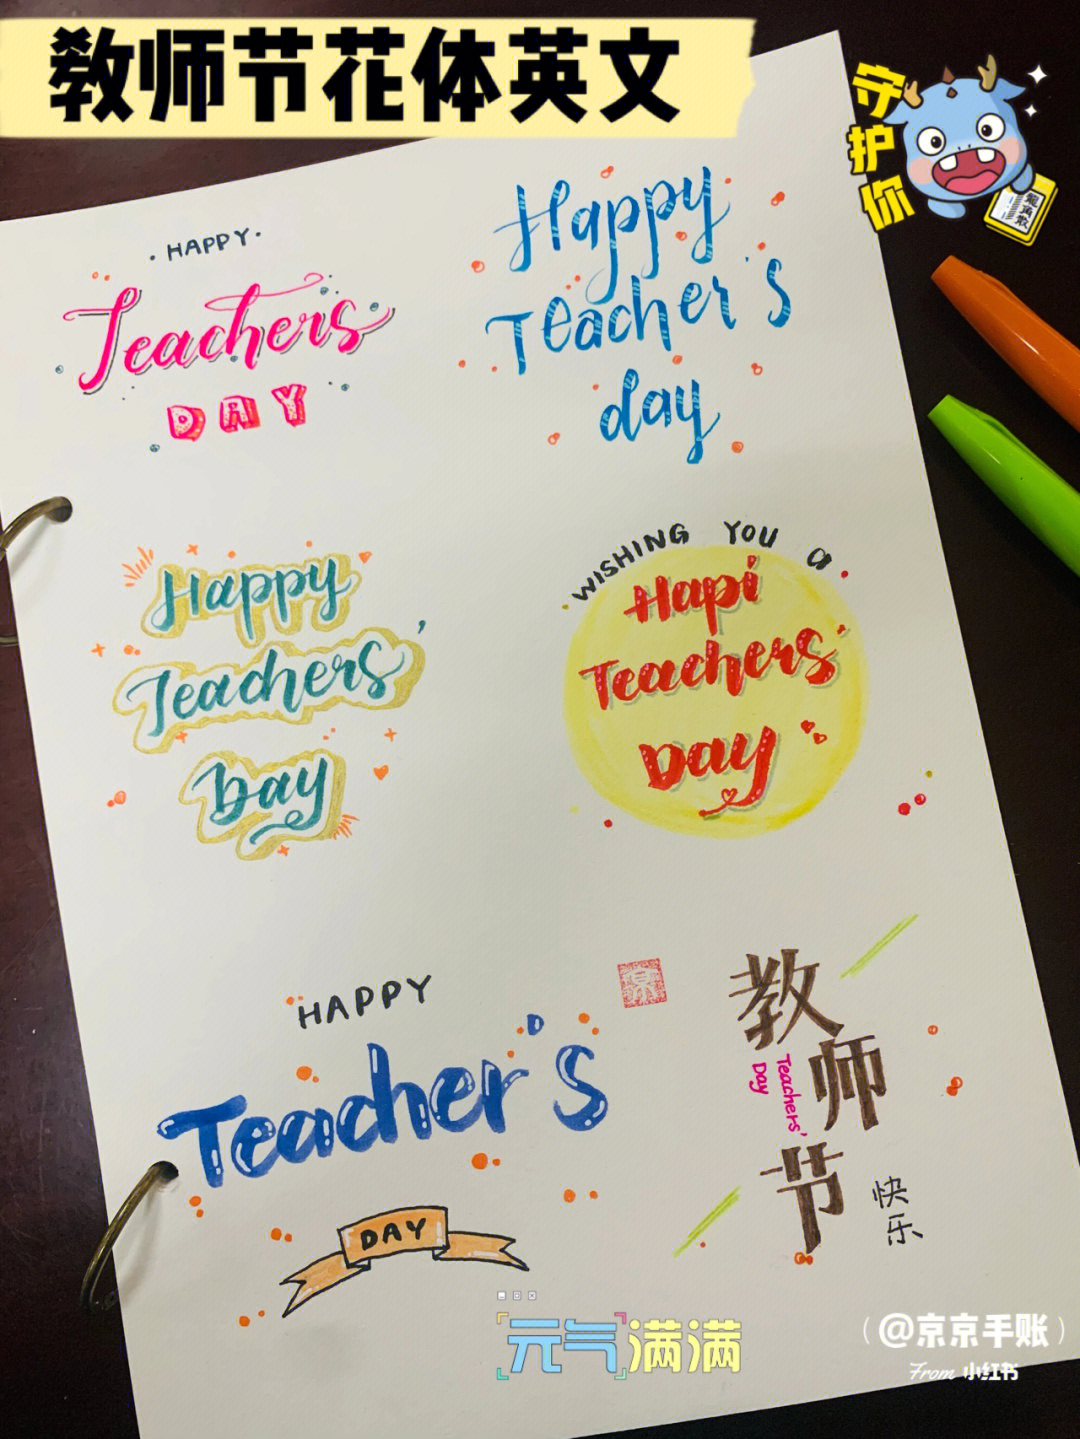 教师节花体英文
守护你
龍角散
·HAPPY·
Teachers
DAY
Happy
Teacher's
day
Happy
Teachers'
Day
WISHING YOU a
Hapi
Teachers'
Day
HAPPY
Teacher's
DAY
京
教师节
Teachers'
Day
快乐
元气满满
(@京京手账)
From 小红书